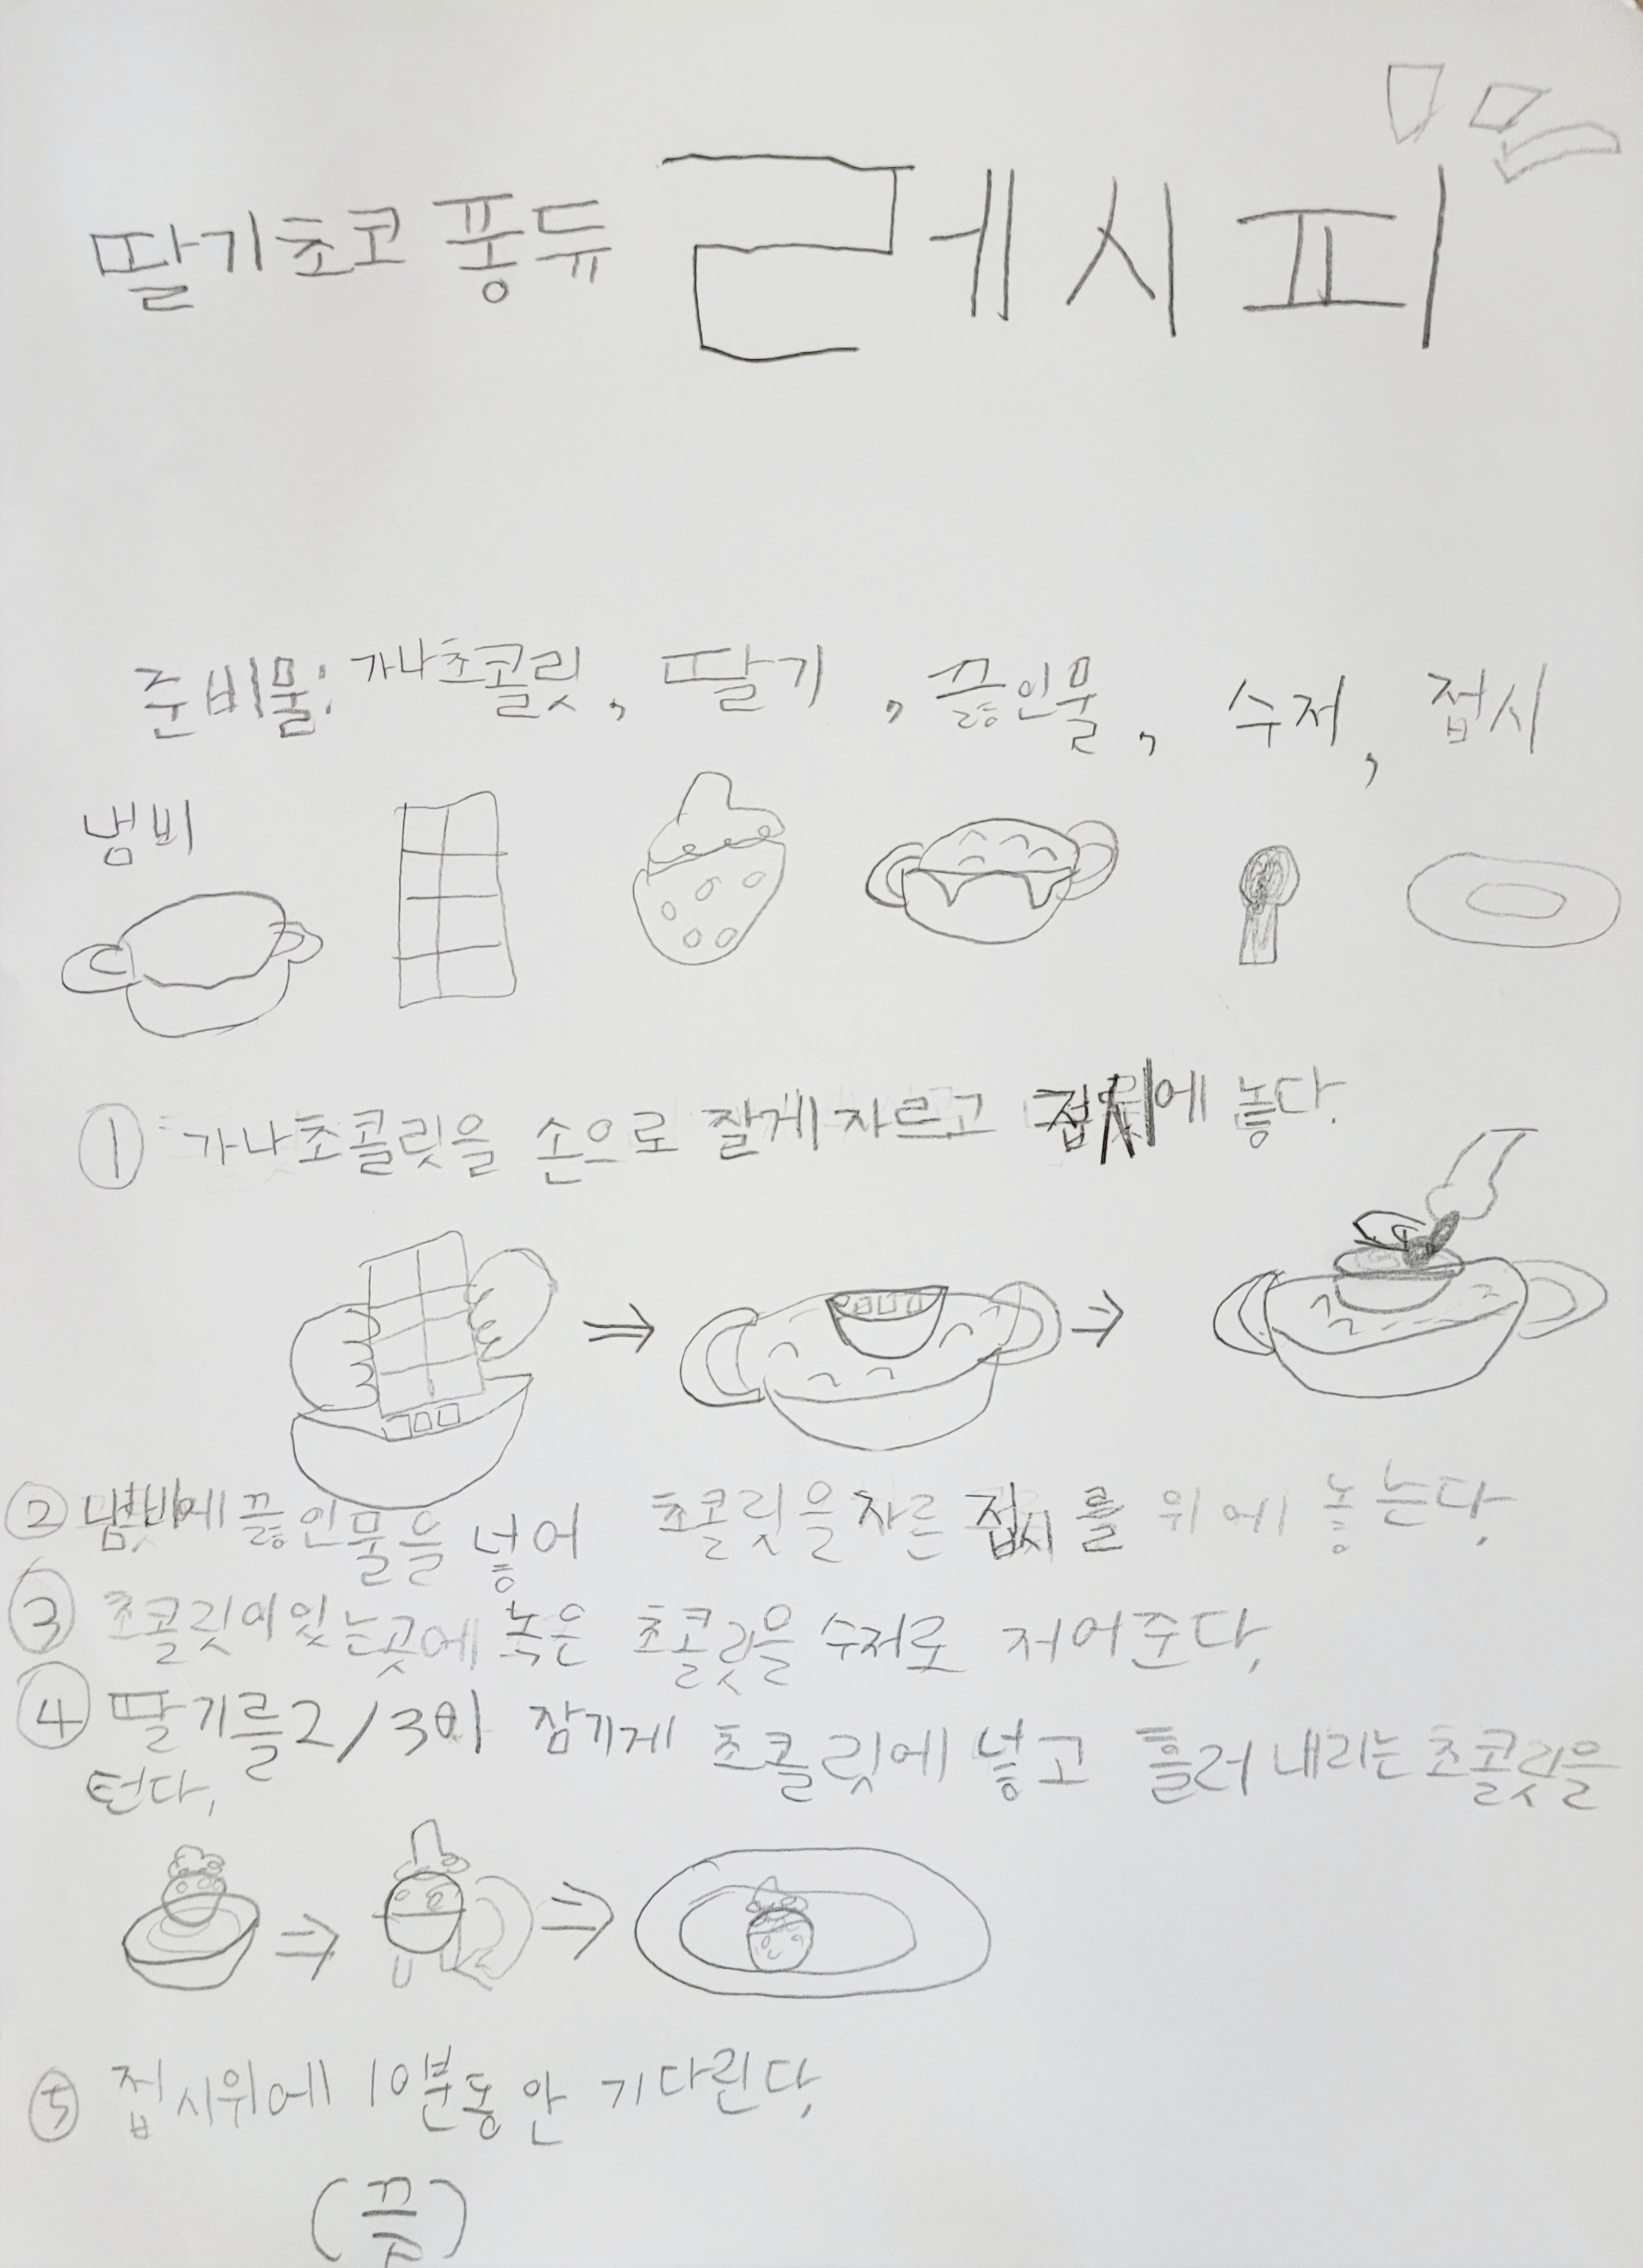 딸기초코퐁듀 레시피
준비물: 가나초콜릿, 딸기, 끓인물, 수저, 접시
냄비
① 가나초콜릿을 손으로 잘게 자르고 접시에 놓다.
② 냄비에 끓인물을 넣어 초콜릿을 자른 접시를 위에 놓는다.
③ 초콜릿이 있는곳에 녹은 초콜릿을 수저로 저어준다.
④ 딸기를 2/3이 잠기게 초콜릿에 넣고 흘러 내리는 초콜릿을
턴다.
⑤ 접시위에 10분동안 기다린다.
(끝)